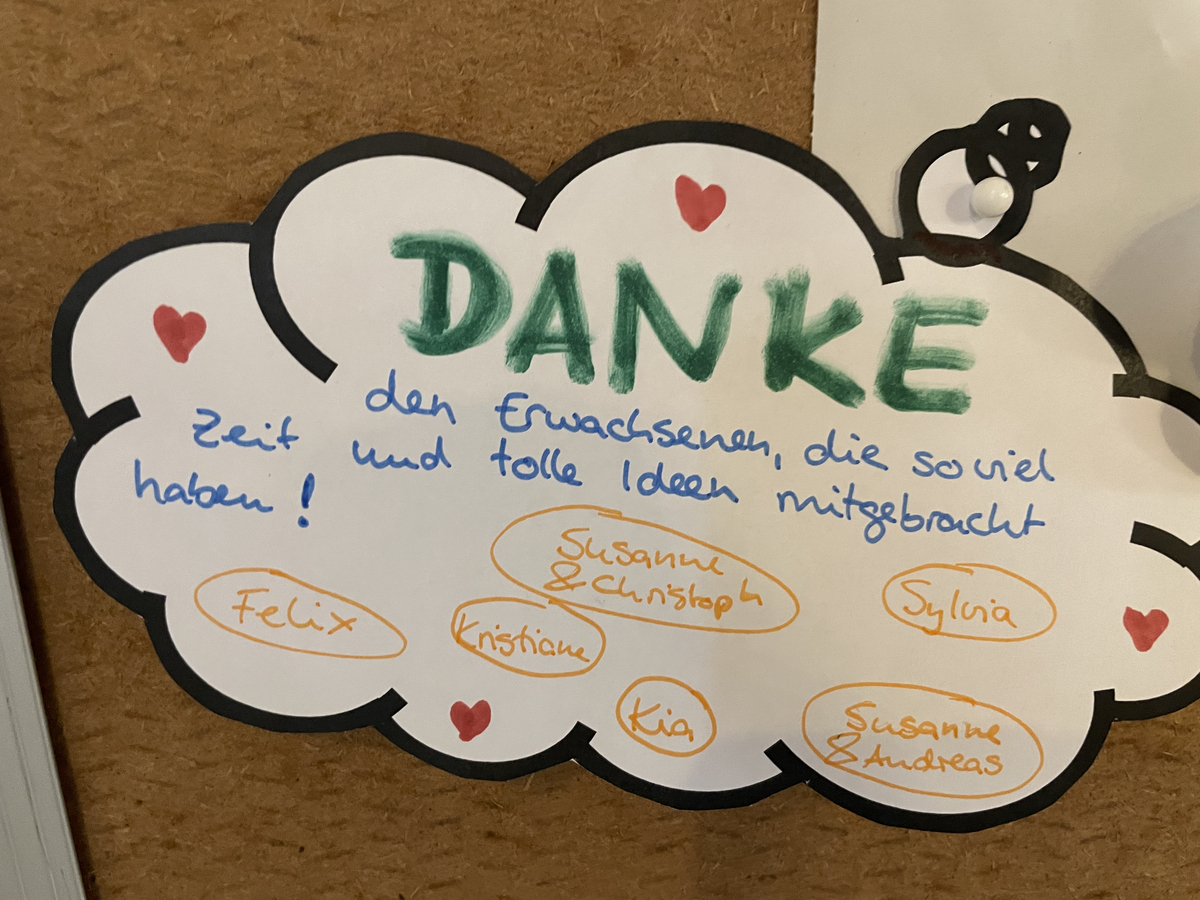 DANKE
den Erwachsenen, die soviel
Zeit und tolle Ideen mitgebracht
haben!
Susanne
& Christoph
Sylvia
Felix
Kristiane
Kia
Susanne
& Andreas